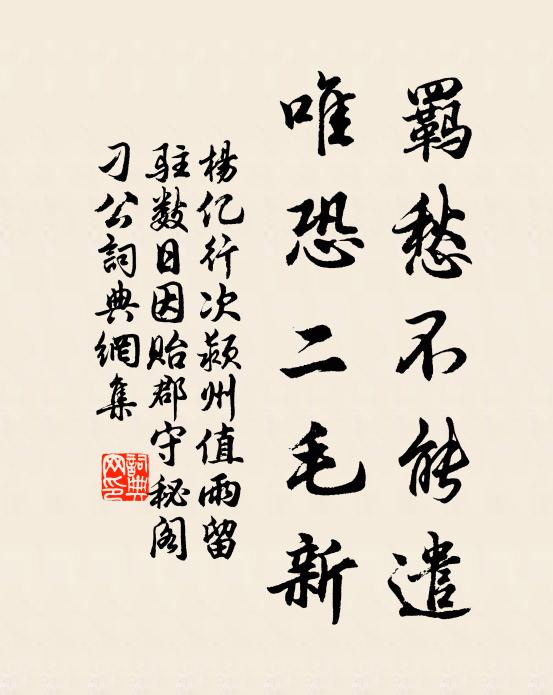 羈愁不能遣
唯恐二毛新
楊亿行次颍州值雨留
駐数日因贻郡守秘阁
刁公詞典網集
詞典
网印